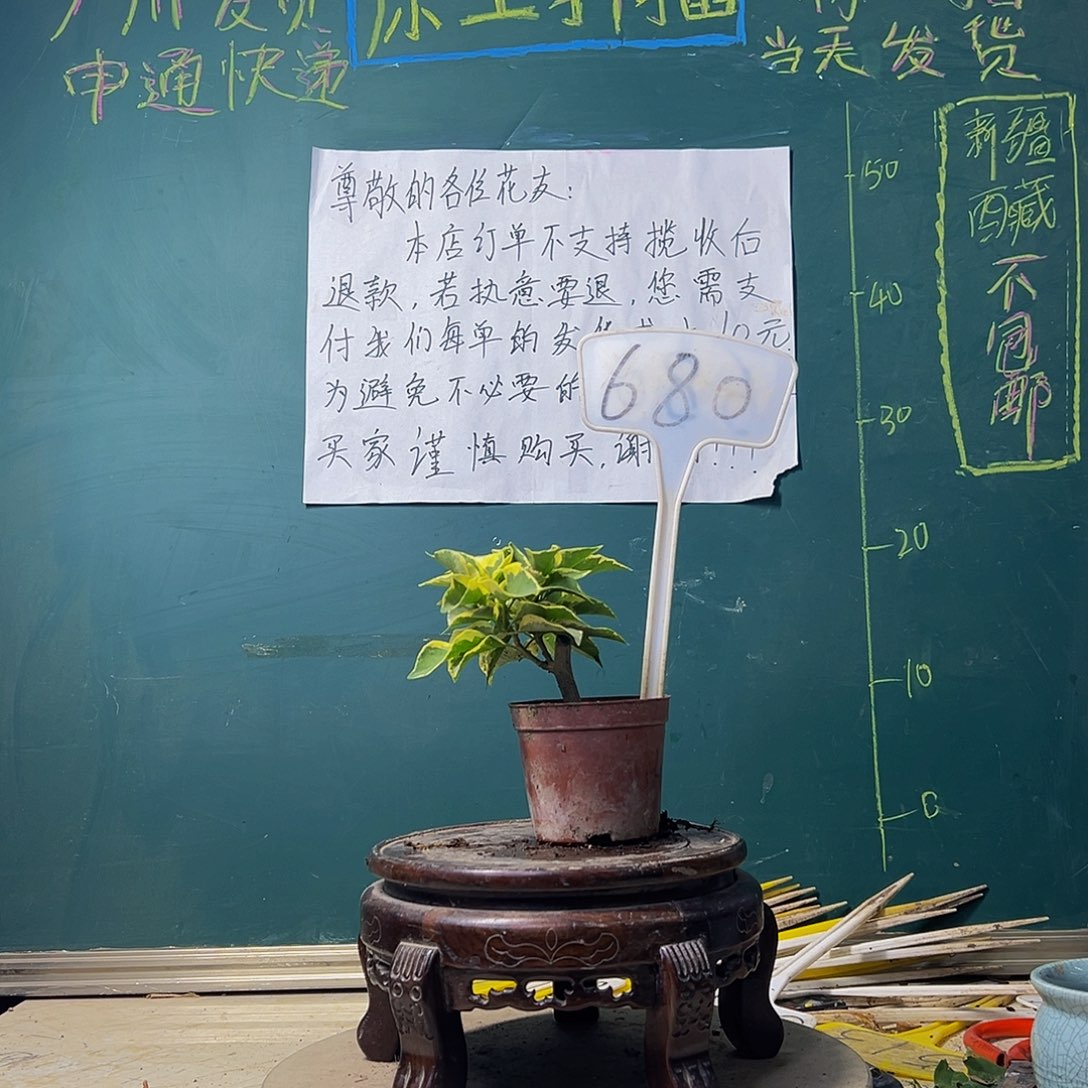 申通快递
当天发货
尊敬的各位花友:
本店订单不支持揽收后
退款,若执意要退,您需支
付我们每单的发
元
为避免不必要的
买家谨慎购买,谢!!!
680
50
40
30
20
10
0
新疆
西藏
不
包
邮